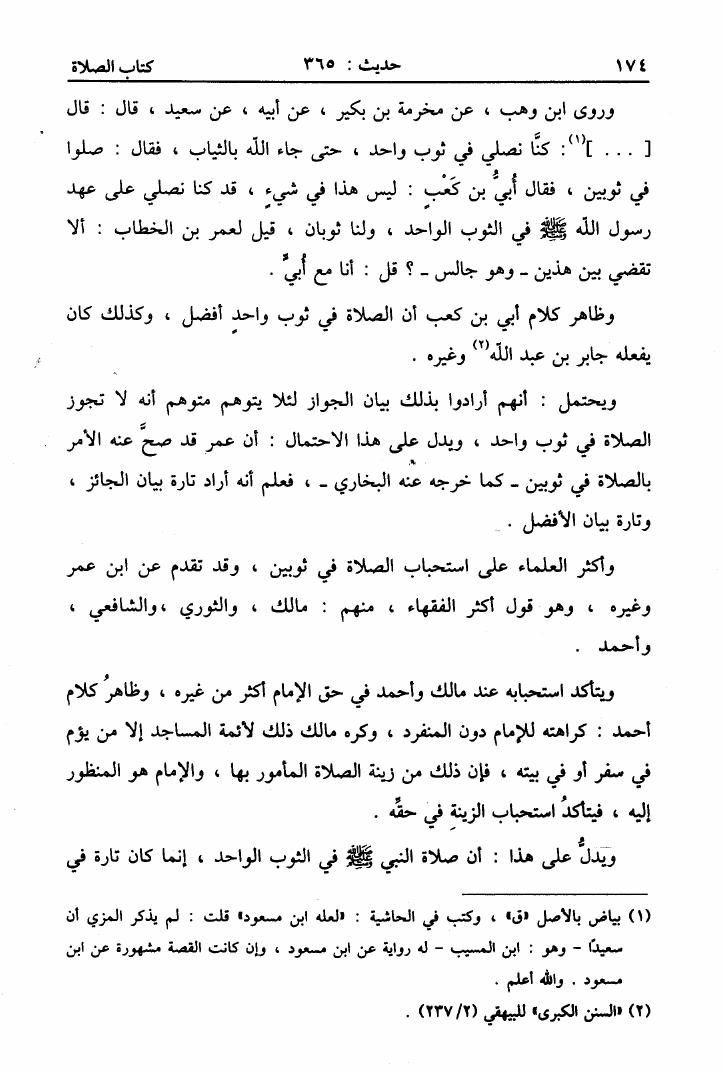 ١٧٤ حديث : ٣٦٥ كتاب الصلاة
وروى ابن وهب ، عن مخرمة بن بكير ، عن أبيه ، عن سعيد ، قال : قال
[ . . . ](١): كنَّا نصلي في ثوب واحد ، حتى جاء اللّه بالثياب ، فقال : صلوا
في ثوبين ، فقال أُبيُّ بن كَعْبٍ : ليس هذا في شيءٍ ، قد كنا نصلي على عهد
رسول اللّه ﷺ في الثوب الواحد ، ولنا ثوبان ، قيل لعمر بن الخطاب : ألا
تقضي بين هذين ـ وهو جالس ـ ؟ قل : أنا مع أُبيٍّ .
وظاهر كلام أبي بن كعب أن الصلاة في ثوب واحدٍ أفضل ، وكذلك كان
يفعله جابر بن عبد اللّه(٢) وغيره .
ويحتمل : أنهم أرادوا بذلك بيان الجواز لئلا يتوهم متوهم أنه لا تجوز
الصلاة في ثوب واحد ، ويدل على هذا الاحتمال : أن عمر قد صحَّ عنه الأمر
بالصلاة في ثوبين ـ كما خرجه عنه البخاري ـ ، فعلم أنه أراد تارة بيان الجائز ،
وتارة بيان الأفضل .
وأكثر العلماء على استحباب الصلاة في ثوبين ، وقد تقدم عن ابن عمر
وغيره ، وهو قول أكثر الفقهاء ، منهم : مالك ، والثوري ،والشافعي ،
وأحمد .
ويتأكد استحبابه عند مالك وأحمد في حق الإمام أكثر من غيره ، وظاهرُ كلام
أحمد : كراهته للإمام دون المنفرد ، وكره مالك ذلك لأئمة المساجد إلا من يؤم
في سفر أو في بيته ، فإن ذلك من زينة الصلاة المأمور بها ، والإمام هو المنظور
إليه ، فيتأكدُ استحباب الزينةِ في حقِّه .
ويَدلُّ على هذا : أن صلاة النبي ﷺ في الثوب الواحد ، إنما كان تارة في
(١) بياض بالأصل «ق» ، وكتب في الحاشية : «لعله ابن مسعود» قلت : لم يذكر المزي أن
سعيدًا - وهو : ابن المسيب - له رواية عن ابن مسعود ، وإن كانت القصة مشهورة عن ابن
مسعود . والله أعلم .
(٢) «السنن الكبرى» للبيهقي (٢٣٧/٢) .